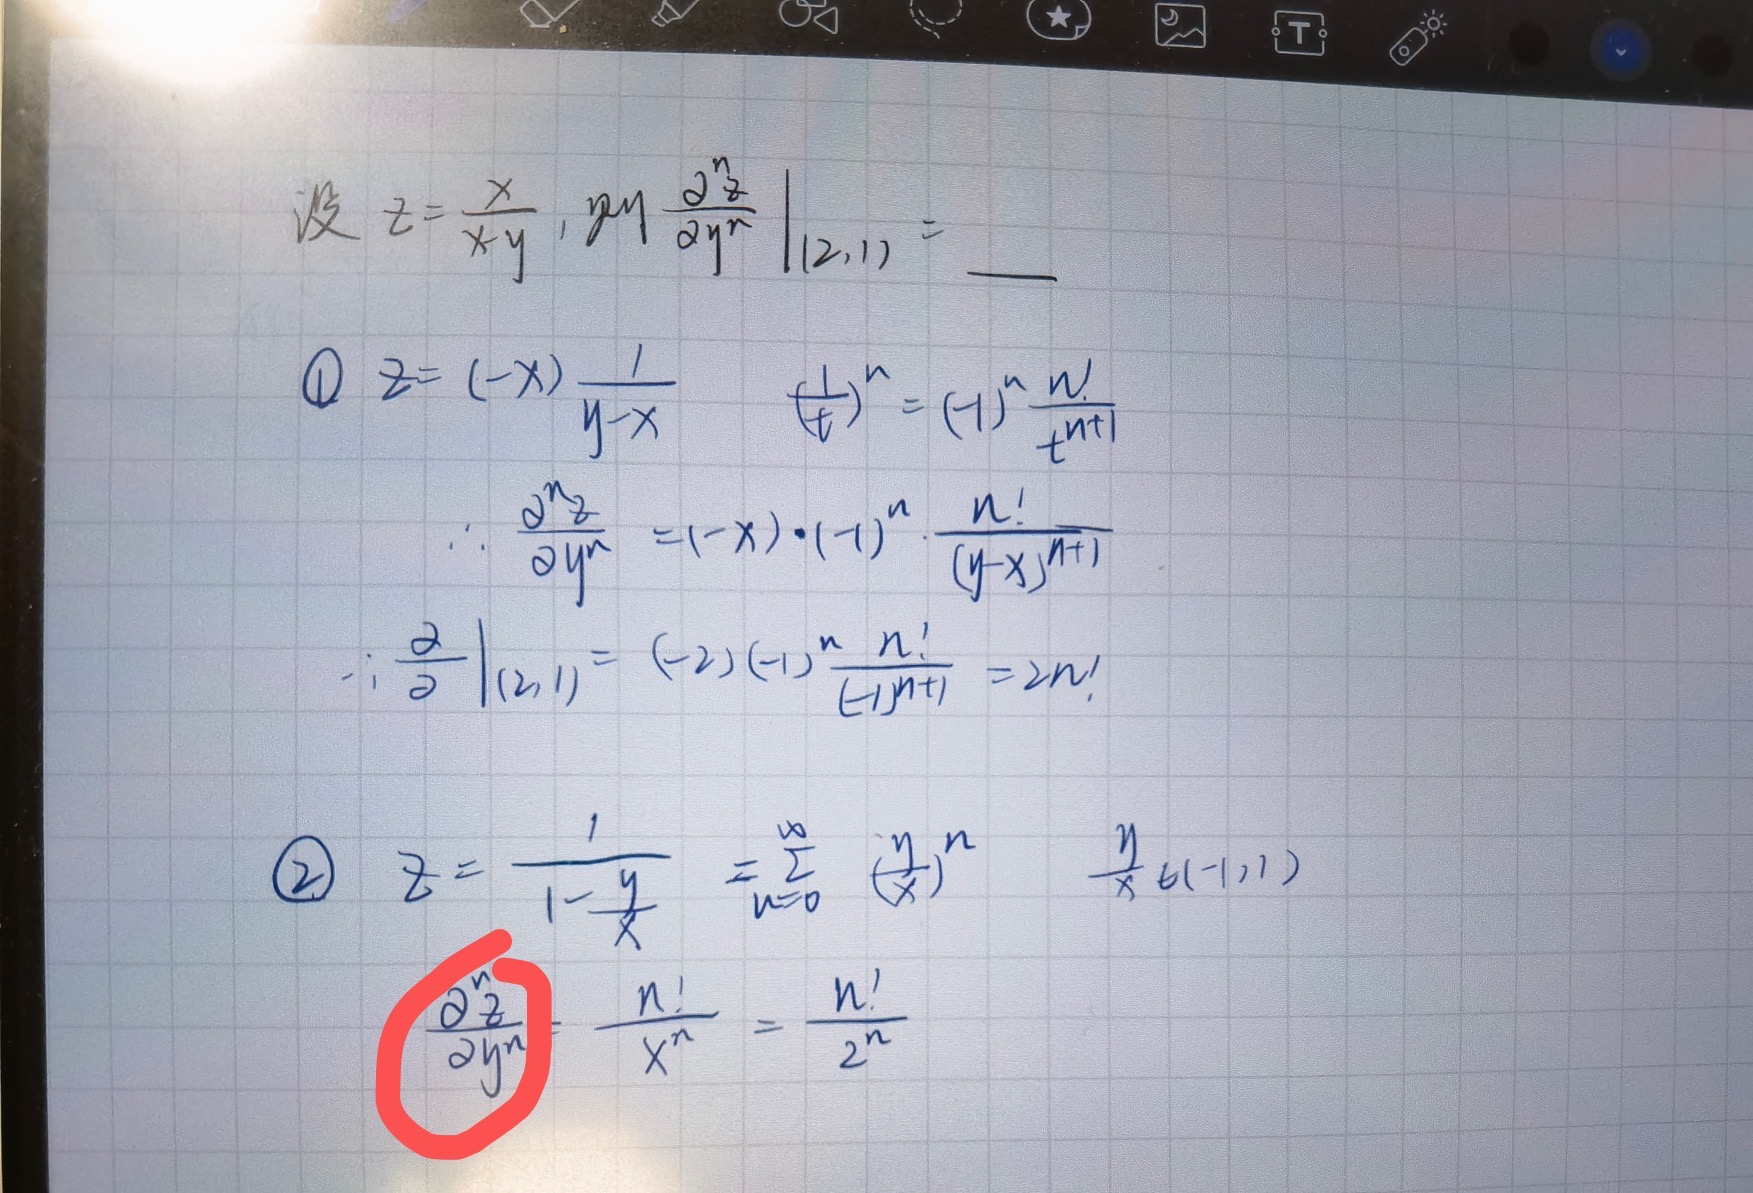 设 z = x/(x-y) , 则 ∂ⁿz/∂yⁿ |(2,1) = ___
① z = (-x) 1/(y-x)   (1/t)ⁿ = (-1)ⁿ n!/tⁿ⁺¹
∴ ∂ⁿz/∂yⁿ = (-x)·(-1)ⁿ · n!/(y-x)ⁿ⁺¹
∴ ∂/∂ |(2,1) = (-2)(-1)ⁿ n!/(-1)ⁿ⁺¹ = 2n!
② z = 1/(1-y/x) = ∑_{n=0}^{∞} (y/x)ⁿ   y/x ∈ (-1,1)
∂ⁿz/∂yⁿ = n!/xⁿ = n!/2ⁿ